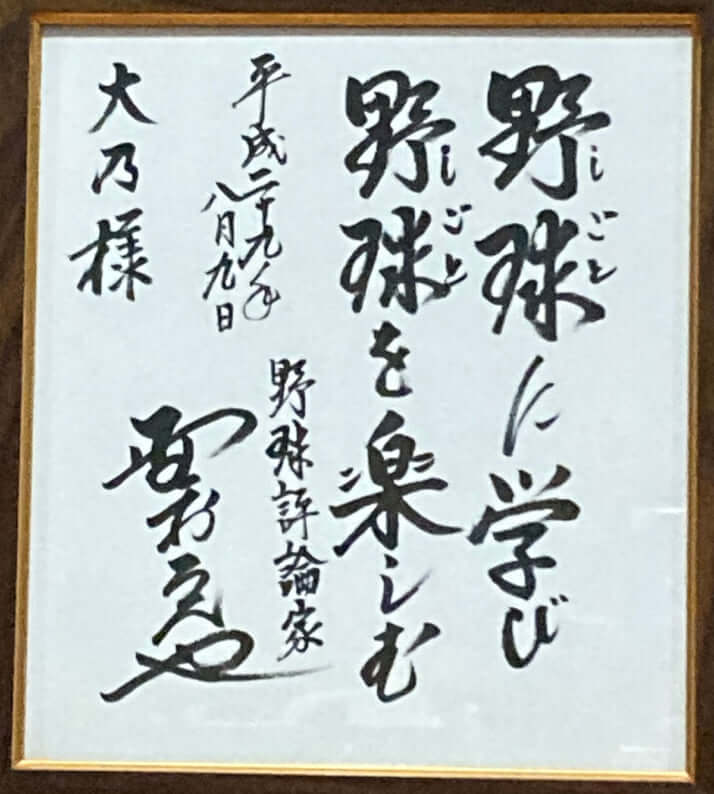 野球に学び
しごと
野球を楽しむ
しごと
平成二十九年
八月九日
野球評論家
大乃様